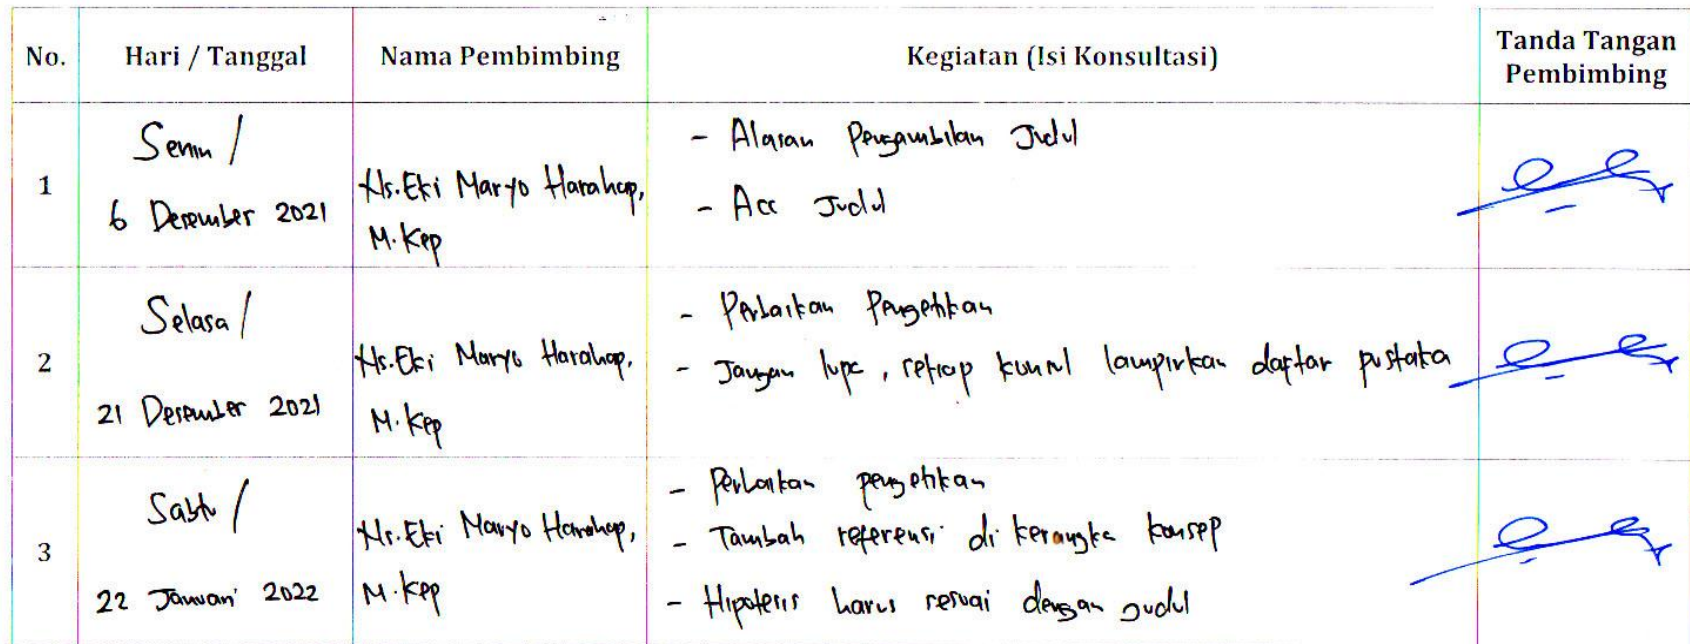 No. Hari / Tanggal Nama Pembimbing Kegiatan (Isi Konsultasi) Tanda Tangan Pembimbing
1
Senin /
6 Desember 2021
Ns. Eki Maryo Harahap,
M. Kep
- Alasan Pengambilan Judul
- Acc Judul
2
Selasa /
21 Desember 2021
Ns. Eki Maryo Harahap,
M. Kep
- Perbaikan Pengetikan
- Jangan lupa, setiap lampirkan daftar pustaka
3
Sabtu /
22 Januari 2022
Ns. Eki Maryo Harahap,
M. Kep
- Perbaikan pengetikan
- Tambah referensi di kerangka konsep
- Hipotesis harus sesuai dengan judul